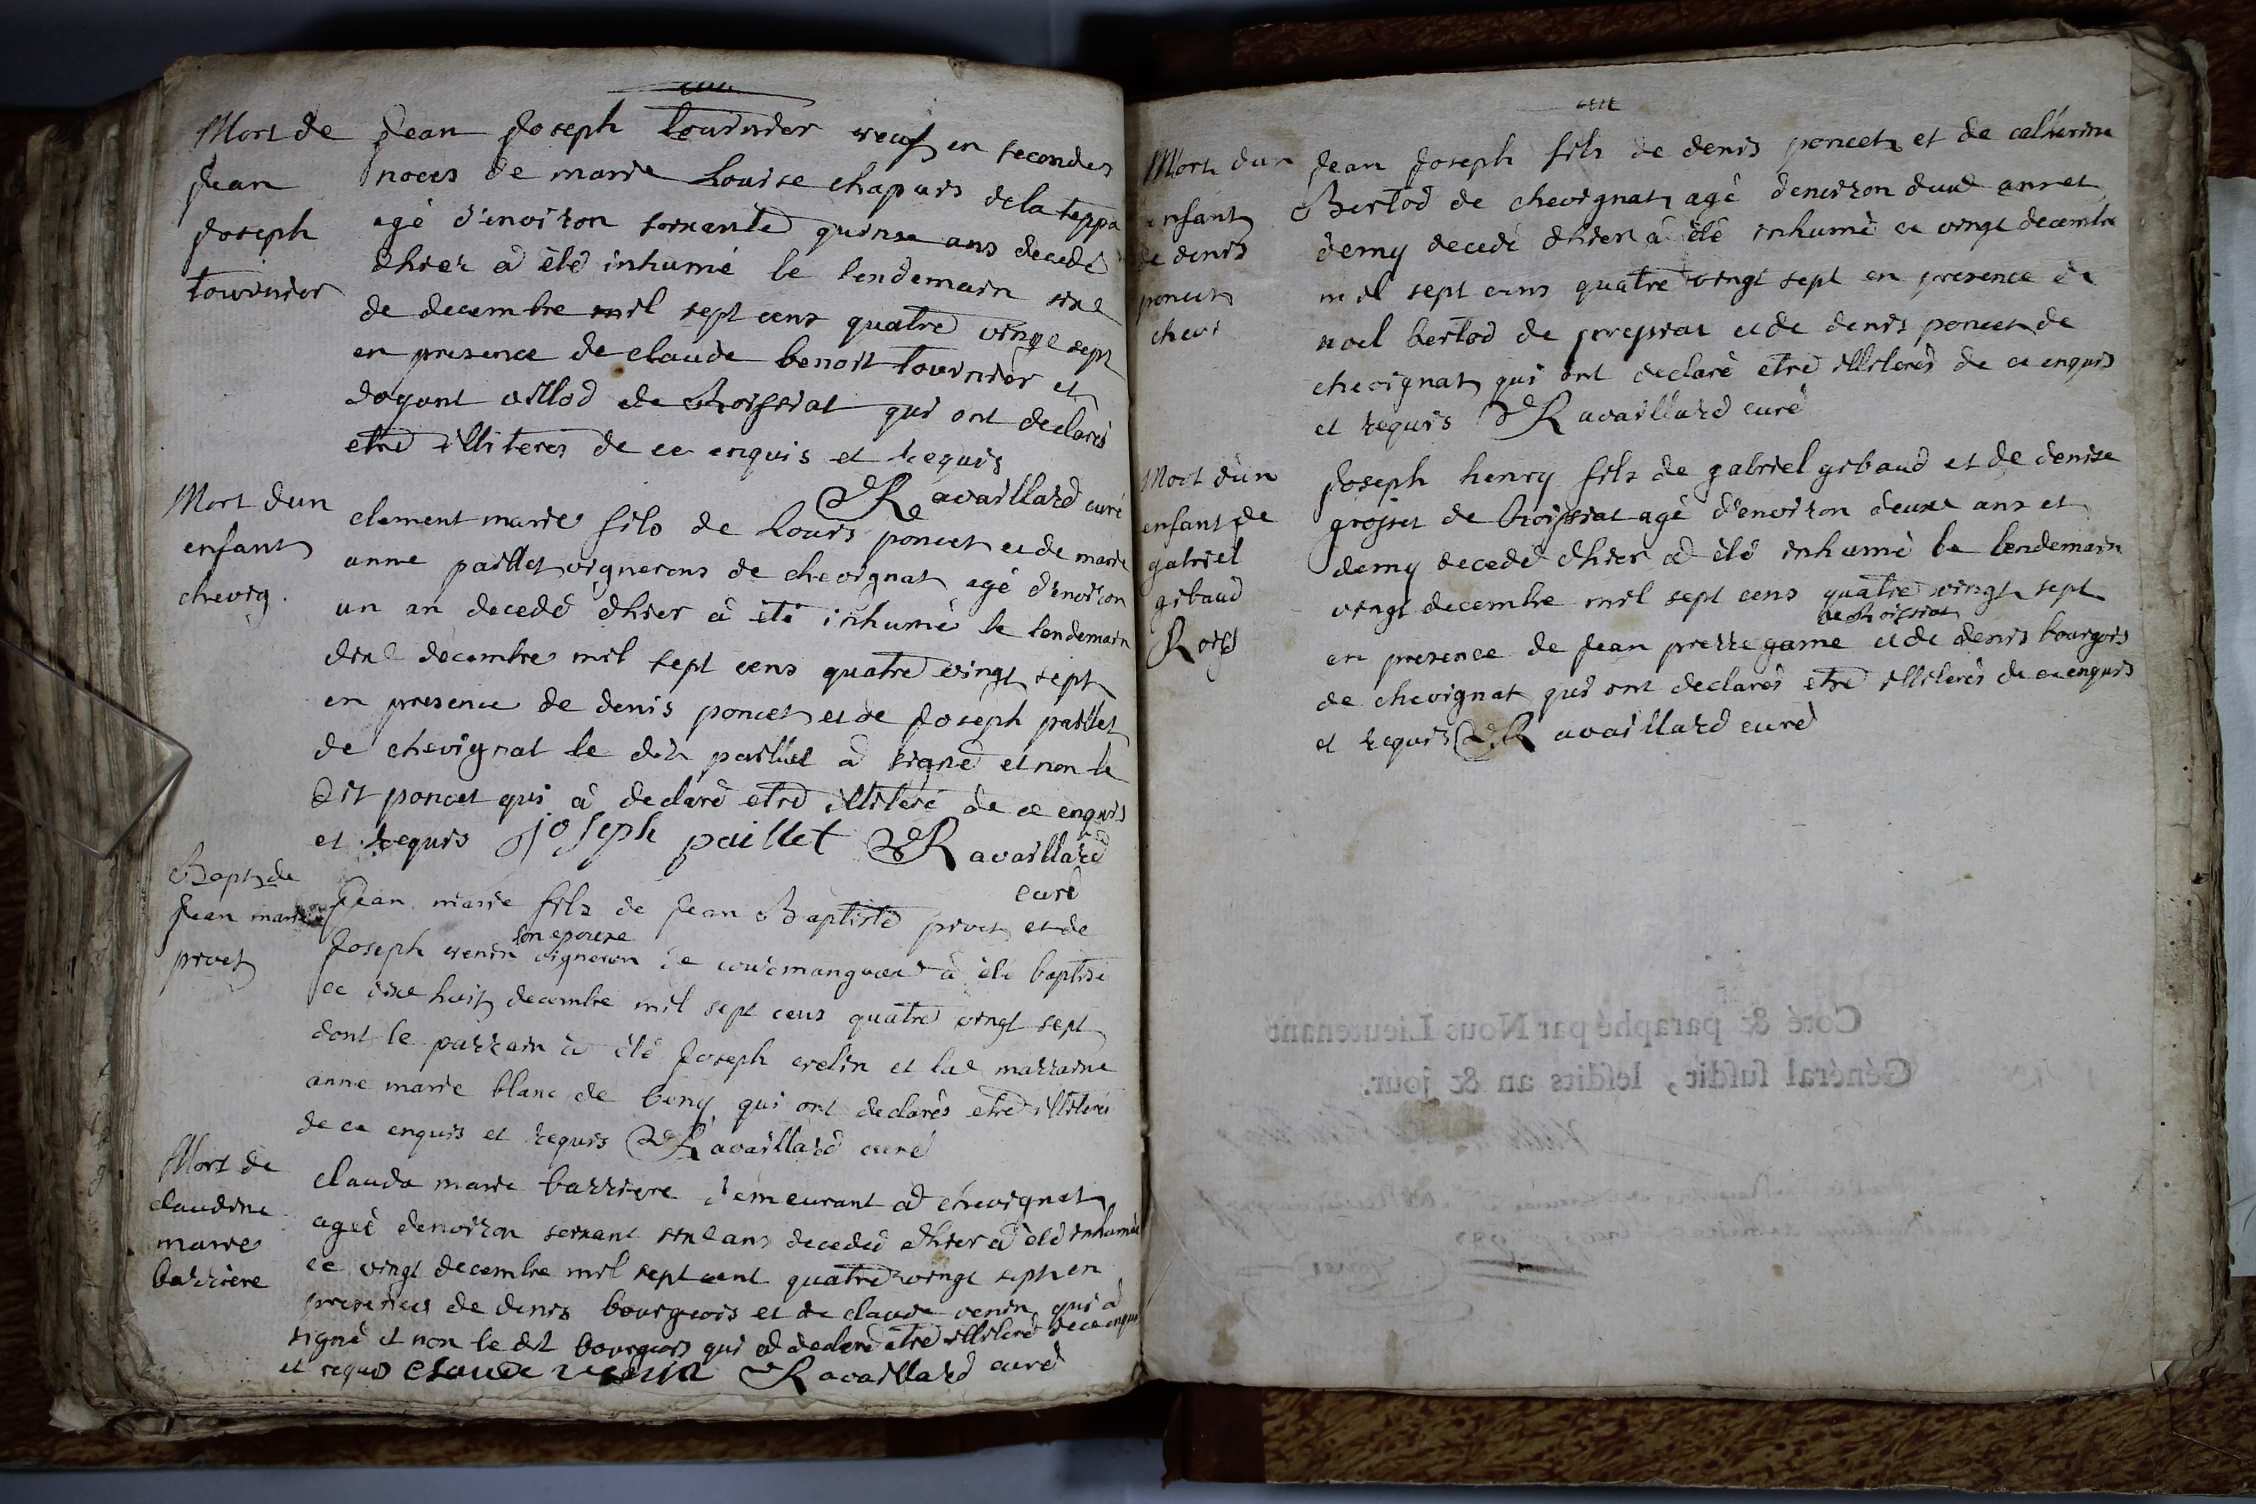 Mort de
Jean
Joseph
tournier
Jean Joseph tournier veuf en secondes
noces de marie Louise chapuis de la teppa
agé d'environ soixante quinse ans decedé
dhier a été inhumé le lendemain sixe
de decembre mil sept cens quatre vingt sept
en presence de claude benoit tournier et
de Roissiat qui ont declarés
etre illiterés de ce enquis et requis
Ravaillard curé
Mort dun
enfant
chevig.
clement marie fils de Louis poncet et de marie
anne paillet vignerons de chevignat agé d'environ
un an decedé dhier à été inhumé le lendemain
dixe decembre mil sept cens quatre vingt sept
en presence de denis poncet et de Joseph paillet
de chevignat le dit paillet a signé et non le
dit poncet qui à declaré etre illiteré de ce enquis
et requis joseph paillet Ravaillard
curé
Bapt de
Jean marie
pivet
Jean marie fils de Jean Baptiste pivet et de
son epouse
Joseph venin vigneron de courmangoux à été baptisé
ce dixe huit decembre mil sept cens quatre vingt sept
dont le parrain à été Joseph velin et la marraine
anne marie blanc de beny qui ont declarés etre illiterés
de ce enquis et requis Ravaillard curé
Mort de
claudine
marie
barriere
clauda marie barriere demeurant a chevignat
ageé denviron soixant sixe ans decedeé dhier a été inhumée
ce vingt decembre mil sept cent quatre vingt sept en
presences de denis bourgeois et de claude venin qui a
signé et non le dit bourgeois qui a declaré etre illiteré de ce enquis
et requis claude venin Ravaillard curé
Mort dun
enfant
de denis
poncet
chevi
Jean Joseph fils de denis poncet et de catherine
Bertod de chevignat agé denviron deux ans et
demy decedé dhier à été inhumé ce vingt decembre
mil sept cens quatre vingt sept en presence de
noel bertod de pressiat et de denis poncet de
chevignat qui ont declaré etre illiterés de ce enquis
et requis Ravaillard curé
Mort d'un
enfant de
gabriel
gibaud
Roiss
Joseph henry fils de gabriel gibaud et de denise
grosset de Roissiat agé d'environ deuxe ans et
demy decedé dhier a été inhumé le lendemain
vingt decembre mil sept cens quatre vingt sept
de Roissiat
en presence de Jean pierre game et de denis bourgois
de chevignat qui ont declarés etre illiterés de ce enquis
et requis Ravaillard curé
Coté & paraphé par Nous Lieutenant
Général susdit, lesdits an & jour.